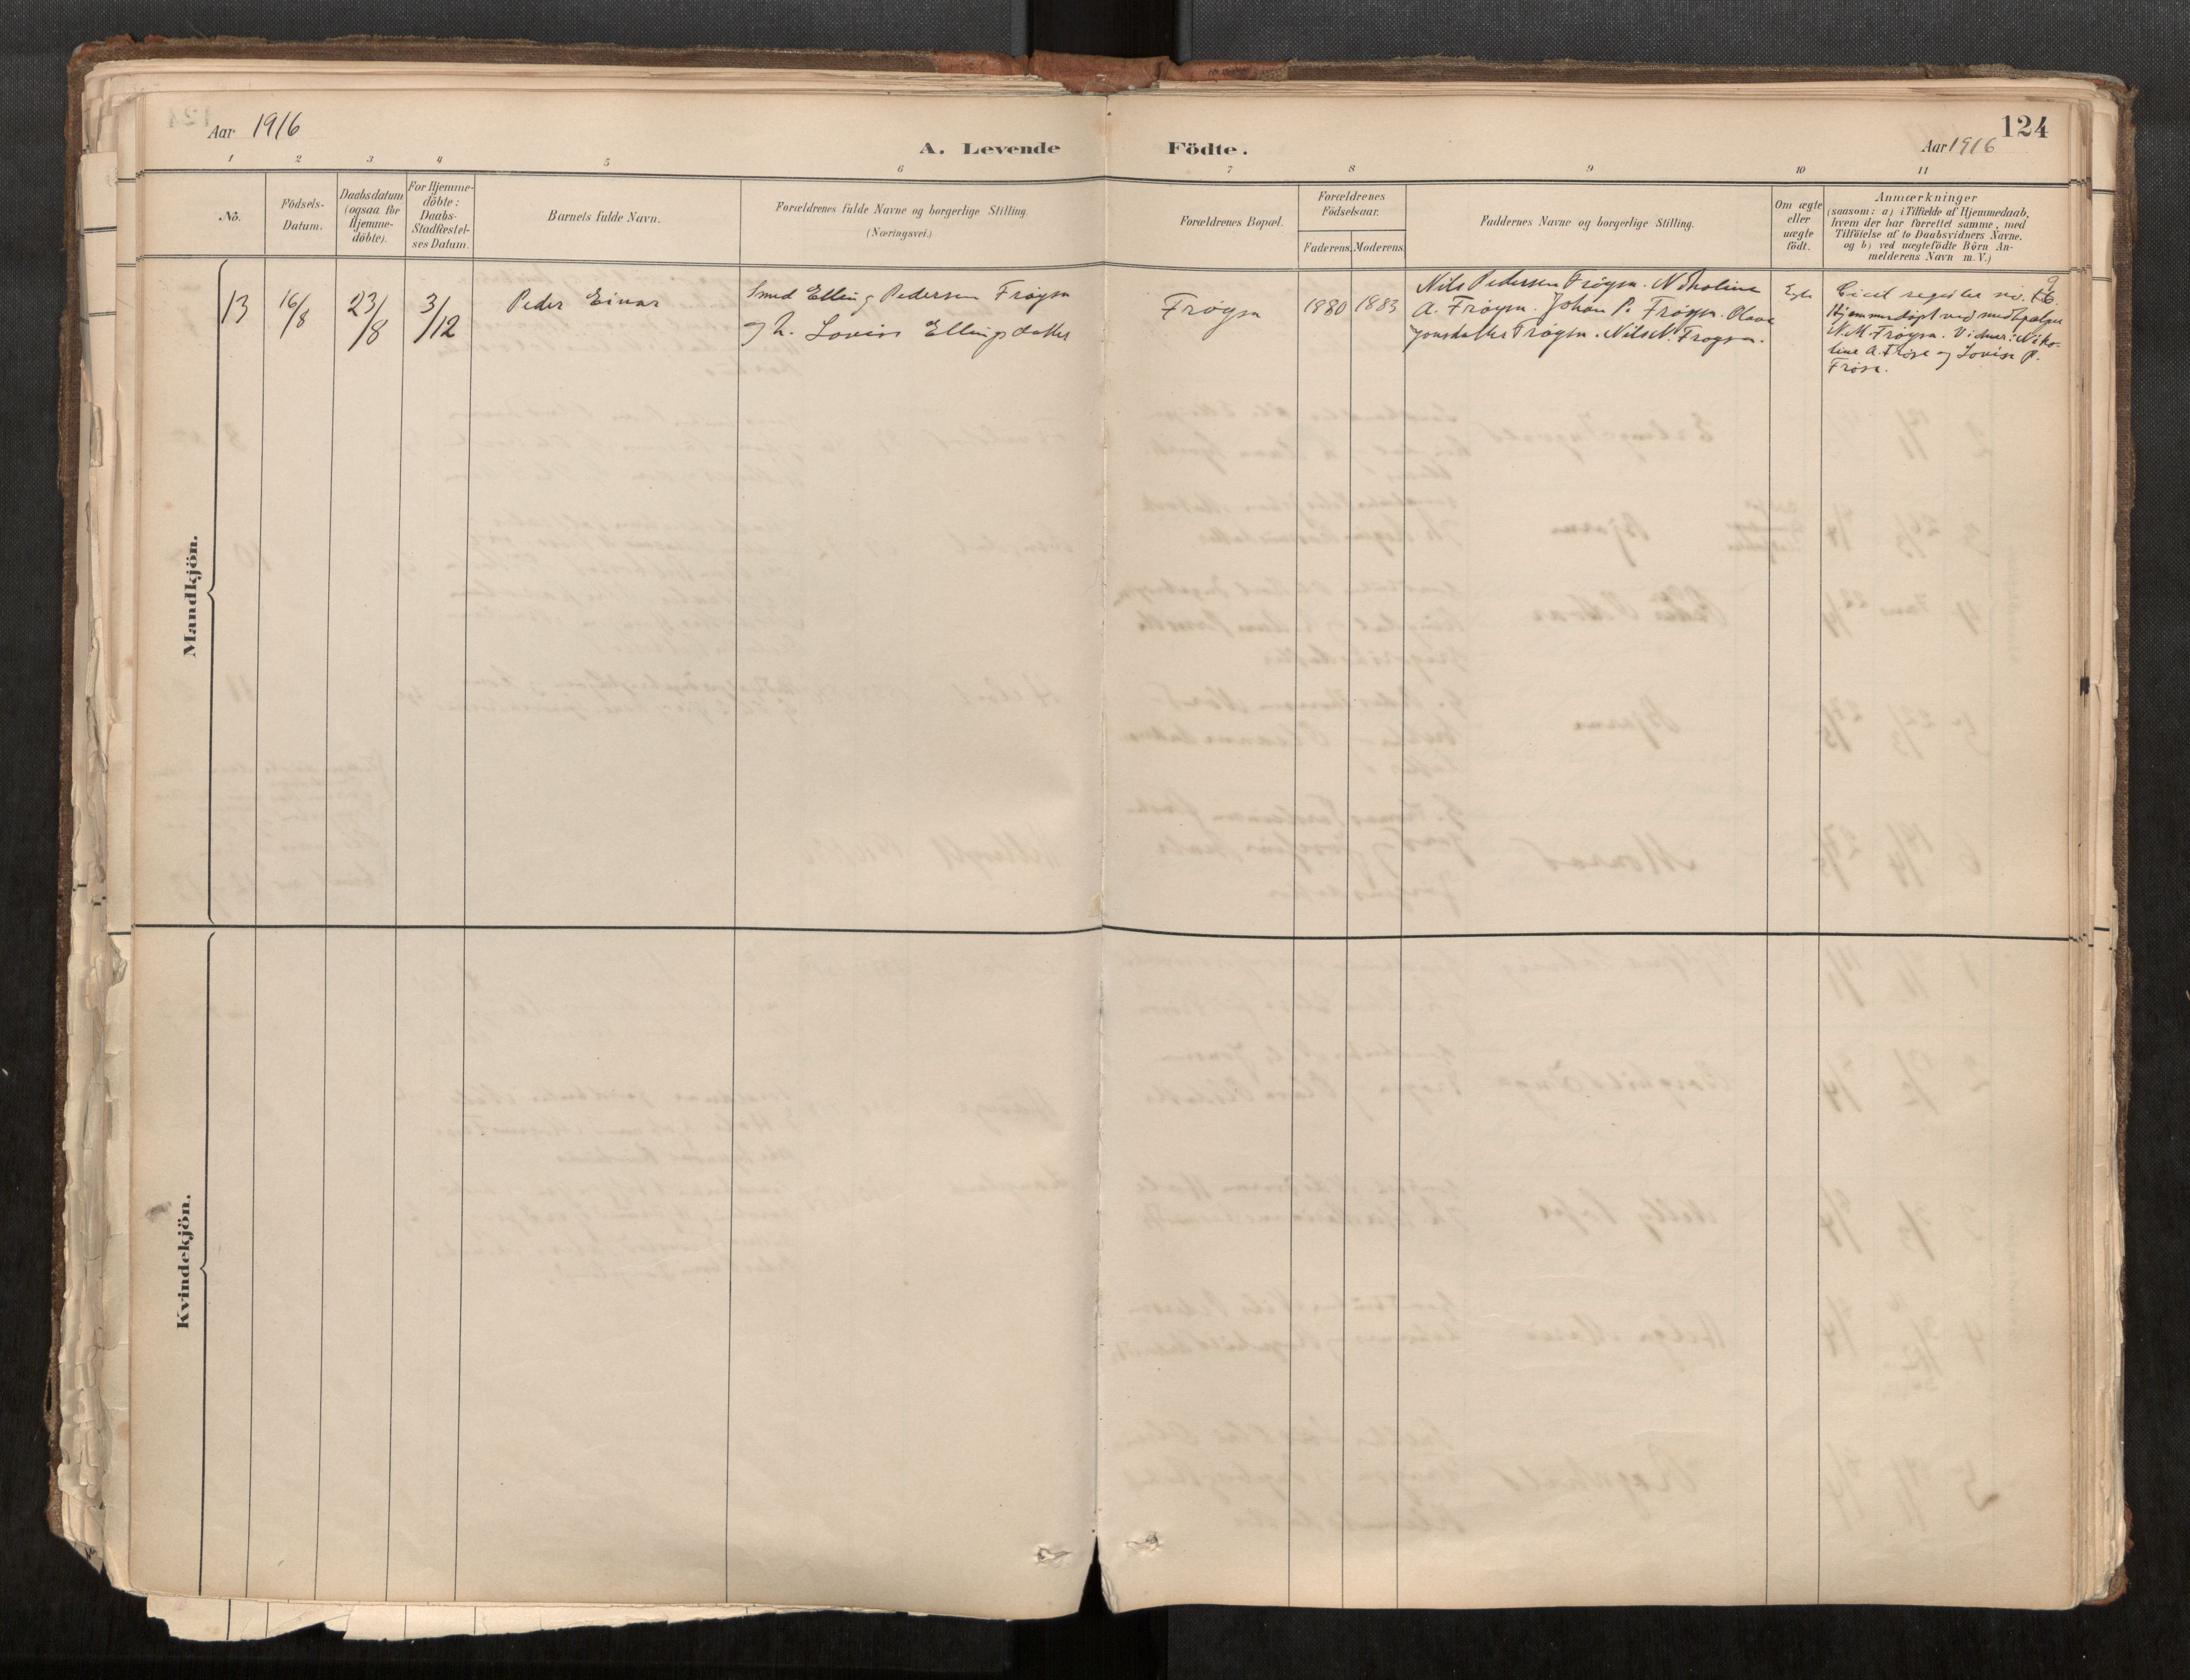 Aar 1916
A. Levende Födte.
124
Aar 1916
1 2 3 4 5 6 7 8 9 10 11
No.
Födsels-
Datum.
Daabsdatum
(ogsaa for
Hjemme-
döbte).
For Hjemme-
döbte:
Daabs-
Stadfæstel-
ses Datum.
Barnets fulde Navn.
Forældrenes fulde Navne og borgerlige Stilling.
(Næringsvei.)
Forældrenes Bopæl.
Forældrenes
Födselsaar.
Faderens. Moderens.
Faddernes Navne og borgerlige Stilling.
Om ægte
eller
uægte
födt.
Anmærkninger
(saasom: a) i Tilfælde af Hjemmedaab,
hvem der har forrettet samme, med
Tilföielse af to Daabsvidners Navne,
og b) ved uægtefödte Börn An-
melderens Navn m.V.)
Mandkjön.
13
16/8
23/8
3/12
Peder Einar
Smed Elling Pedersen Frøysa
og h. Lovise Ellingsdatter
Frøysa
1880
1883
Nils Pedersen Frøysa. Nikoline
A. Frøysa. Johan P. Frøysa. Olava
Jonsdatter Frøysa. Nils N. Frøysa.
Egte
Civil register no.
Hjemmedøpt ved medhjælper
N. M. Frøysa. Vidner: Niko-
line A. Frøysa og Lovise P.
Frøisa.
Kvindekjön.